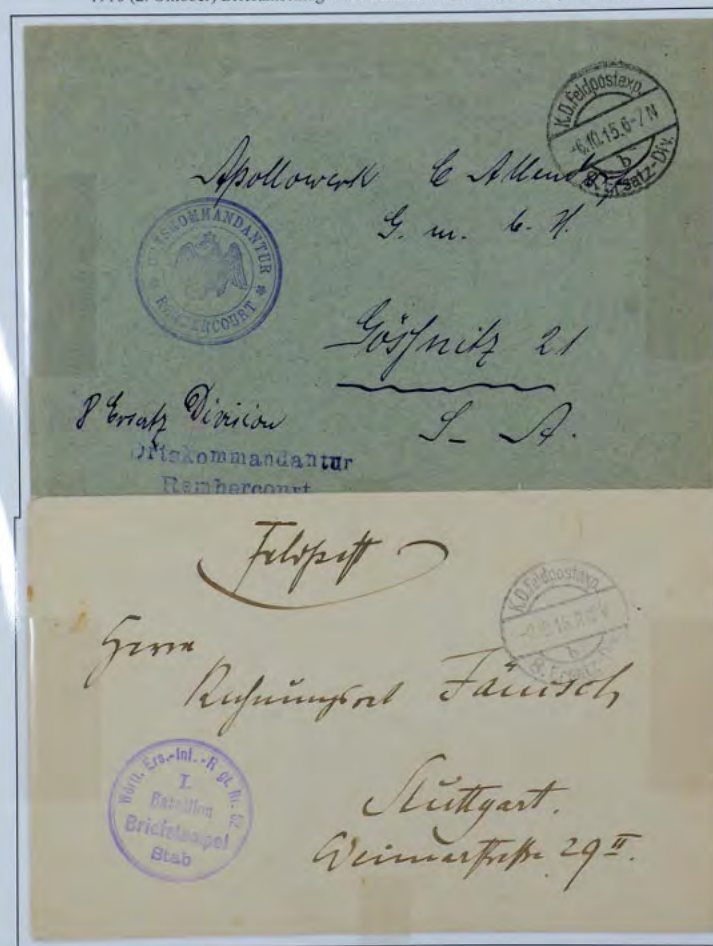 K.D.Feldpostexp.
-6.10.15.6-7N
b
8. Ersatz-Div.
Apollowerk C Allendorf
G. m. b. H.
ORTSKOMMANDANTUR
REMBERCOURT
Gößnitz 21
8 Ersatz Division
S- A.
Ortskommandantur
Rembercourt
Feldpost
K.D.Feldpostexp.
b
8. Ersatz-Div.
Herrn
Rechnungsrat Jänisch
Ers.-Inf.-Rgt. Nr.
I.
Bataillon
Briefstempel
Stab
Stuttgart.
Weimarstraße 29 II.